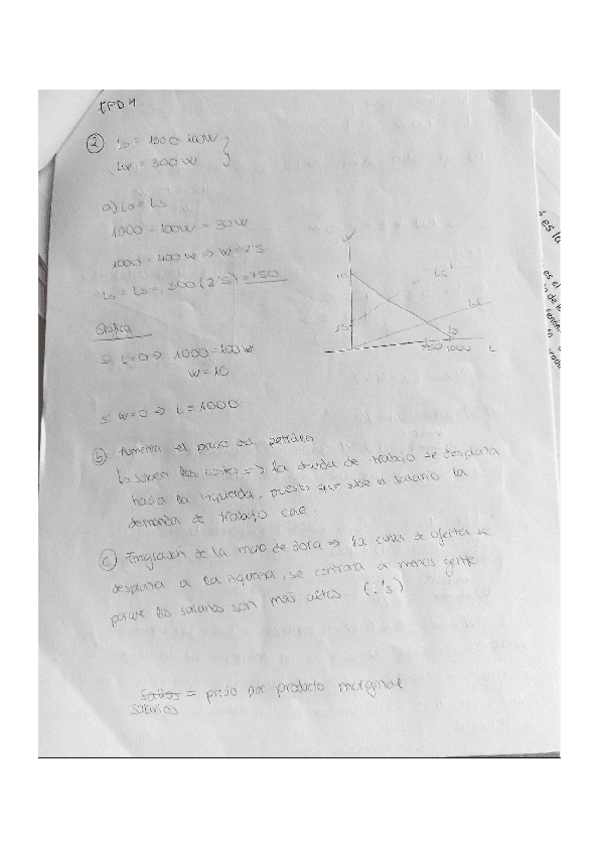 EPD 4
② Lo = 1000 - 100W
Lw = 300W
a) Lo = Ls
1000 - 100W = 30W
1000 = 400W => W = 2'5
Lo = Ls = 300 (2'5) = 750
Gráfica
si L=0 => 1000 = 100W
W = 10
si W=0 => L = 1000
10
2'5
Ls'
Ls
Lo
750 1000 L
ⓑ Aumenta el precio del petróleo
Ls suben los costes => la de trabajo se desplaza
hacia la izquierda, puesto que sube el salario la
demanda de trabajo cae.
ⓒ Emigración de la mano de obra => la curva de oferta se
desplaza a la izquierda, se contrata a menos gente
porque los salarios son más altos.
= precio por producto marginal
salarios
es la
es el